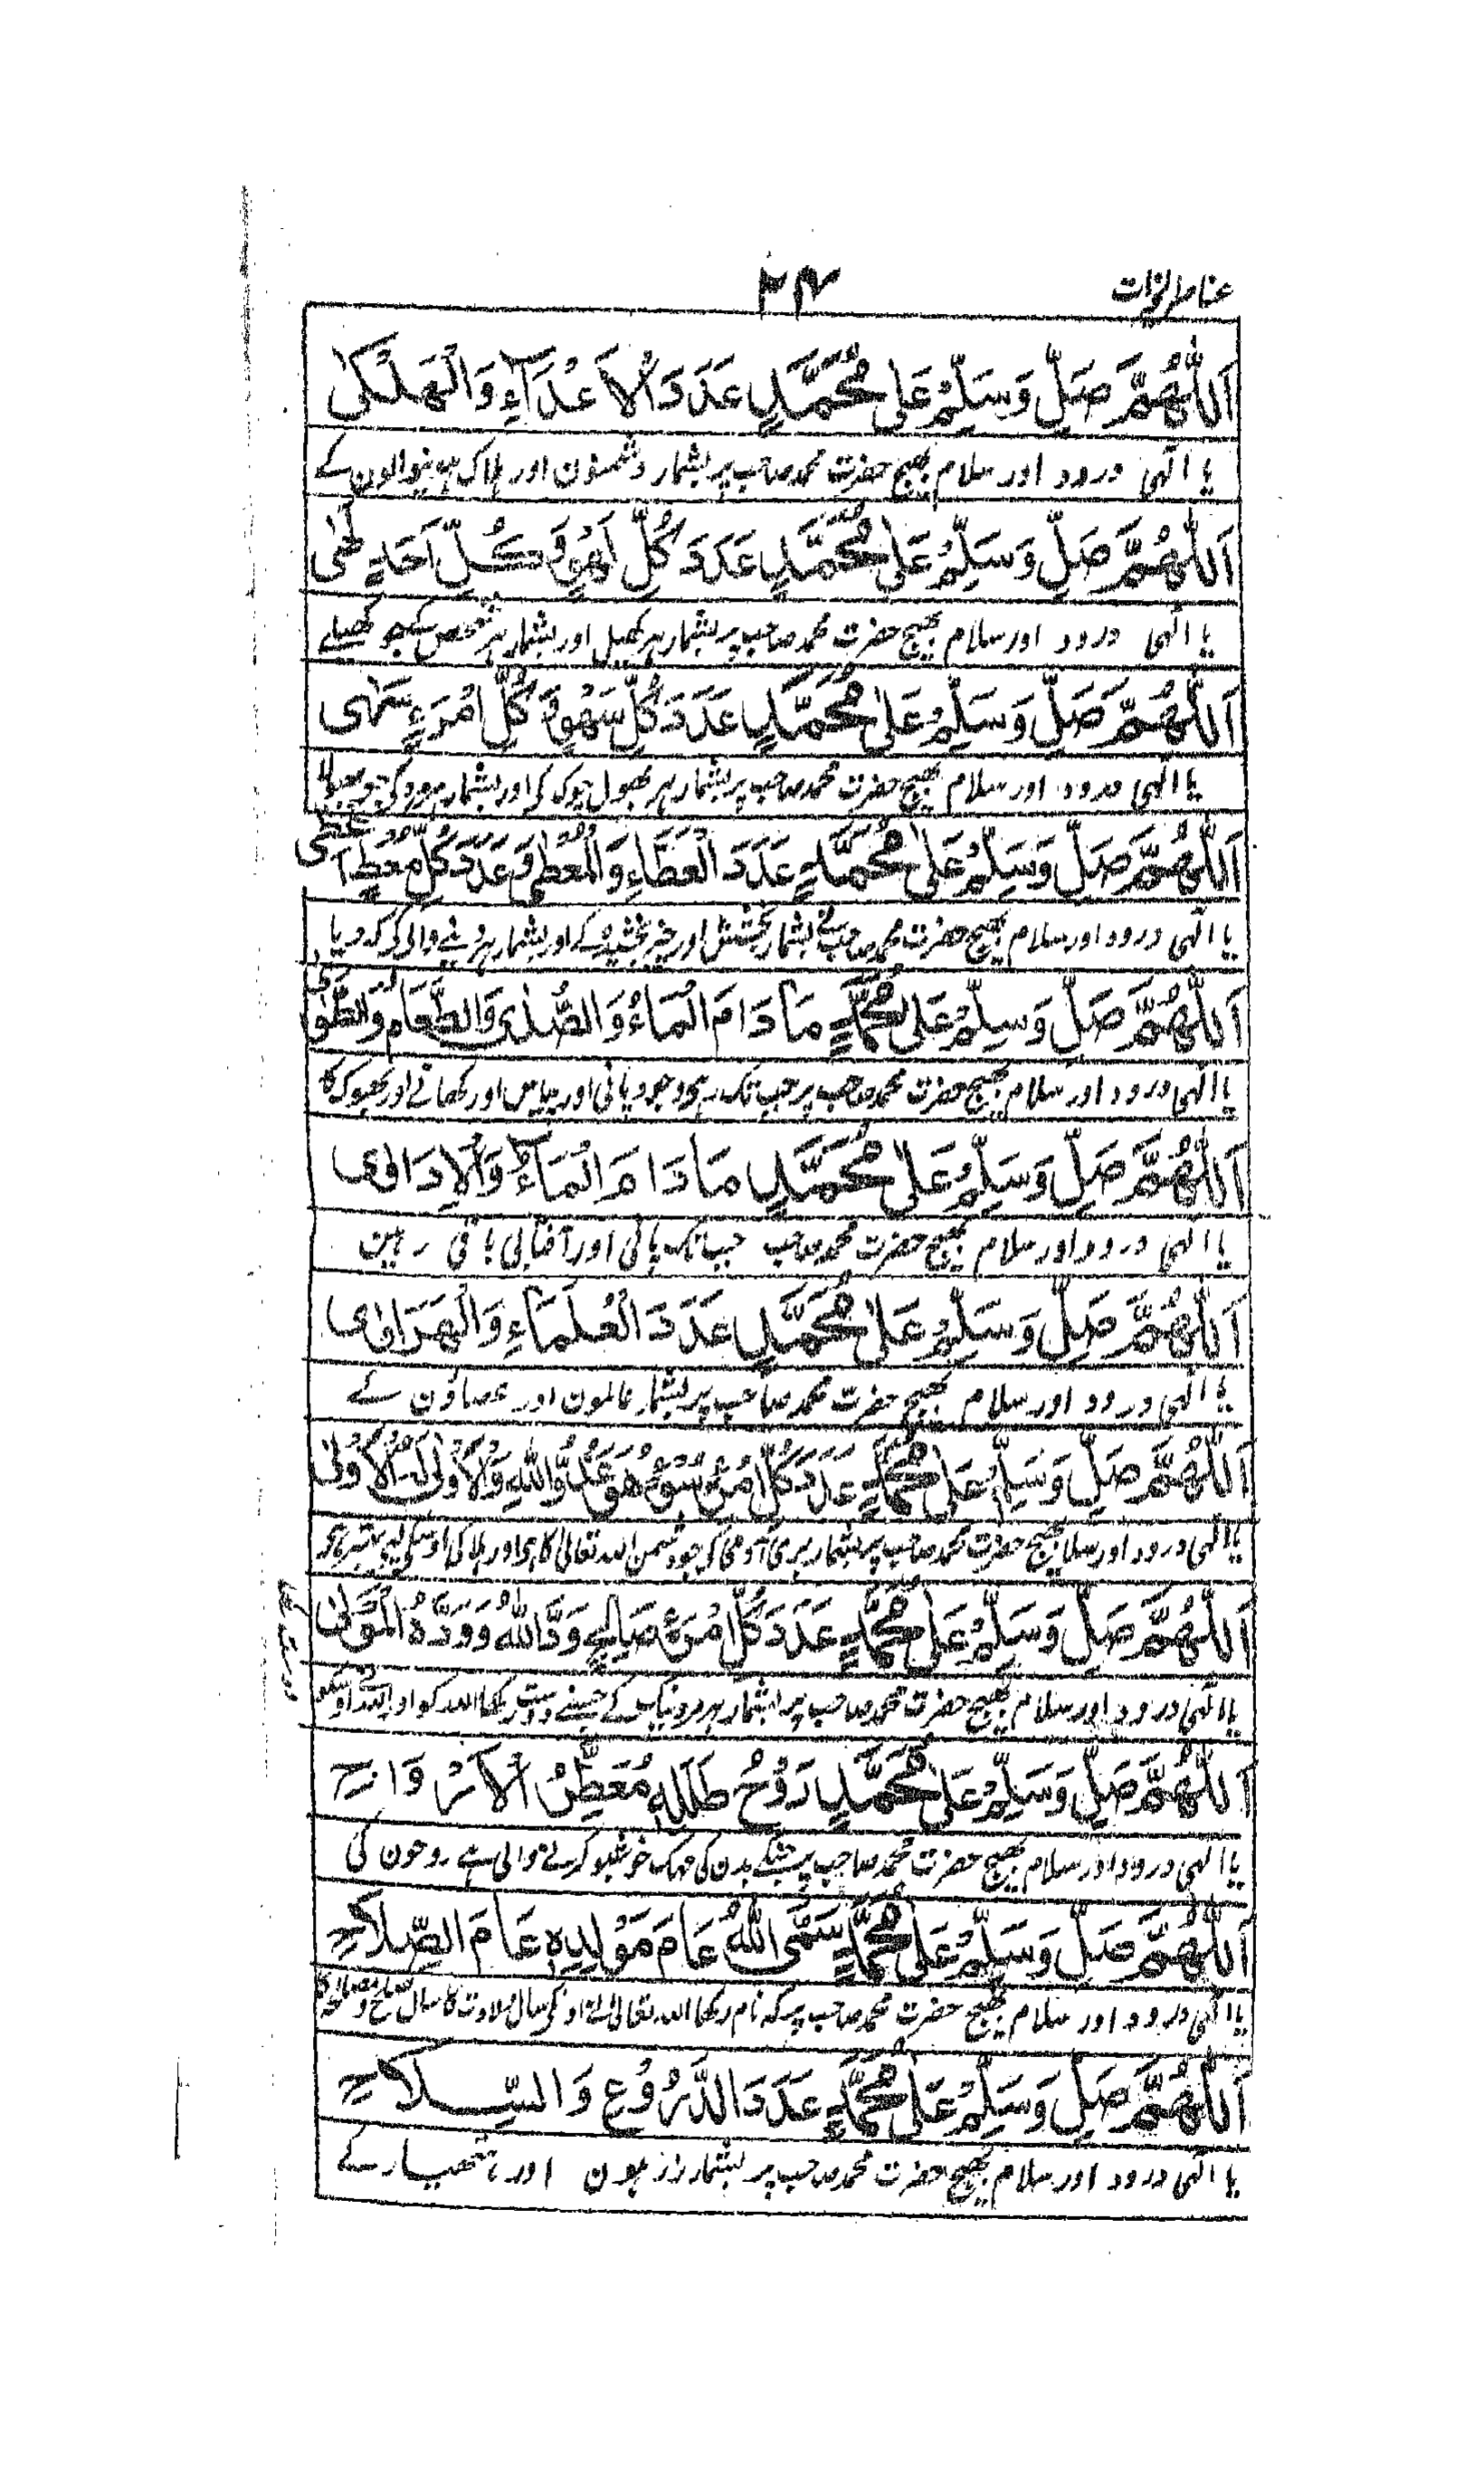 ۲۴
اَللّٰهُمَّ صَلِّ وَسَلِّمْ عَلٰى مُحَمَّدٍ عَدَدَ الْاَعْدَآءِ وَالْهَلْكٰى
یا الٰہی درود اور سلام بھیج حضرت محمد صاحب پر بشمار دشمنون اور ہلاک ہونیوالون کے
اَللّٰهُمَّ صَلِّ وَسَلِّمْ عَلٰى مُحَمَّدٍ عَدَدَ كُلِّ لَهْوٍ وَّ كُلِّ اَحَدٍ لَّهٰى
یا الٰہی درود اور سلام بھیج حضرت محمد صاحب پر بشمار ہر کھیل اور بشمار ہر شخص کے جو کھیلے
اَللّٰهُمَّ صَلِّ وَسَلِّمْ عَلٰى مُحَمَّدٍ عَدَدَ كُلِّ سَهْوٍ وَّ كُلِّ امْرَءٍ سَهٰى
یا الٰہی درود اور سلام بھیج حضرت محمد صاحب پر بشمار ہر بھول چوک کی اور بشمار ہر مرد کی جو بھولا
اَللّٰهُمَّ صَلِّ وَسَلِّمْ عَلٰى مُحَمَّدٍ عَدَدَ الْعَطَاءِ وَالْمُعْطٰى وَعَدَدَ كُلِّ مُعْطٍ اَعْطٰى
یا الٰہی درود اور سلام بھیج حضرت محمد صاحب بشمار بخشش اور چیز بخشیدہ کے اور بشمار ہر دینے والی کی کہ دیا
اَللّٰهُمَّ صَلِّ وَسَلِّمْ عَلٰى مُحَمَّدٍ مَا دَامَ الْمَاءُ وَالصُّدٰى وَالطَّعَامُ وَالطَّوٰى
یا الٰہی درود اور سلام بھیج حضرت محمد صاحب پر جب تک رہی وجود پانی اور پیاس اور کھانے اور بھوک کا
اَللّٰهُمَّ صَلِّ وَسَلِّمْ عَلٰى مُحَمَّدٍ مَا دَامَ الْمَآءُ وَالْاِدَاوٰى
یا الٰہی درود اور سلام بھیج حضرت محمد صاحب جب تک پانی اور آفتابی باقی رہین
اَللّٰهُمَّ صَلِّ وَسَلِّمْ عَلٰى مُحَمَّدٍ عَدَدَ الْعُلَمَآءِ وَالْهَرَاوٰى
یا الٰہی درود اور سلام بھیج حضرت محمد صاحب پر بشمار عالمون اور عصاؤن کے
اَللّٰهُمَّ صَلِّ وَسَلِّمْ عَلٰى مُحَمَّدٍ عَدَدَ كُلِّ امْرَءِ سُوْءٍ هُوَ عَدُوُّ اللهِ وَالْاَوْلٰى لَهُ الْاُوْلٰى
یا الٰہی درود اور سلام بھیج حضرت محمد صاحب پر بشمار بری آدمی کی جو دشمن اللہ تعالیٰ کا ہو اور ہلاکی اوسکی لیے بہتر ہو
اَللّٰهُمَّ صَلِّ وَسَلِّمْ عَلٰى مُحَمَّدٍ عَدَدَ كُلِّ امْرَءٍ صَالِحٍ وَدَّ اللهَ وَوَدَّهُ الْمَوْلٰى
یا الٰہی درود اور سلام بھیج حضرت محمد صاحب پر بشمار ہر مرد نیک کے جسنے دوست رکھا اللہ کو اور اللہ نے اوسکو
دوست رکھا
اَللّٰهُمَّ صَلِّ وَسَلِّمْ عَلٰى مُحَمَّدٍ رَوْحُ طَلَلِهٖ مُعَطِّرُ الْاَرْوَاحِ
یا الٰہی درود اور سلام بھیج حضرت محمد صاحب پر جسکے بدن کی مہک خوشبو کرنے والی ہے روحون کی
اَللّٰهُمَّ صَلِّ وَسَلِّمْ عَلٰى مُحَمَّدٍ سَمَّى اللهُ عَامَ مَوْلِدِهٖ عَامَ الصِّلَاحِ
یا الٰہی درود اور سلام بھیج حضرت محمد صاحب پر کہ نام رکھا اللہ تعالیٰ نے اونکی سال ولادت کا سال صلح و مصالحہ کا
اَللّٰهُمَّ صَلِّ وَسَلِّمْ عَلٰى مُحَمَّدٍ عَدَدَ الدُّرُوْعِ وَالسِّلَاحِ
یا الٰہی درود اور سلام بھیج حضرت محمد صاحب پر بشمار زرہون اور ہتھیار کے